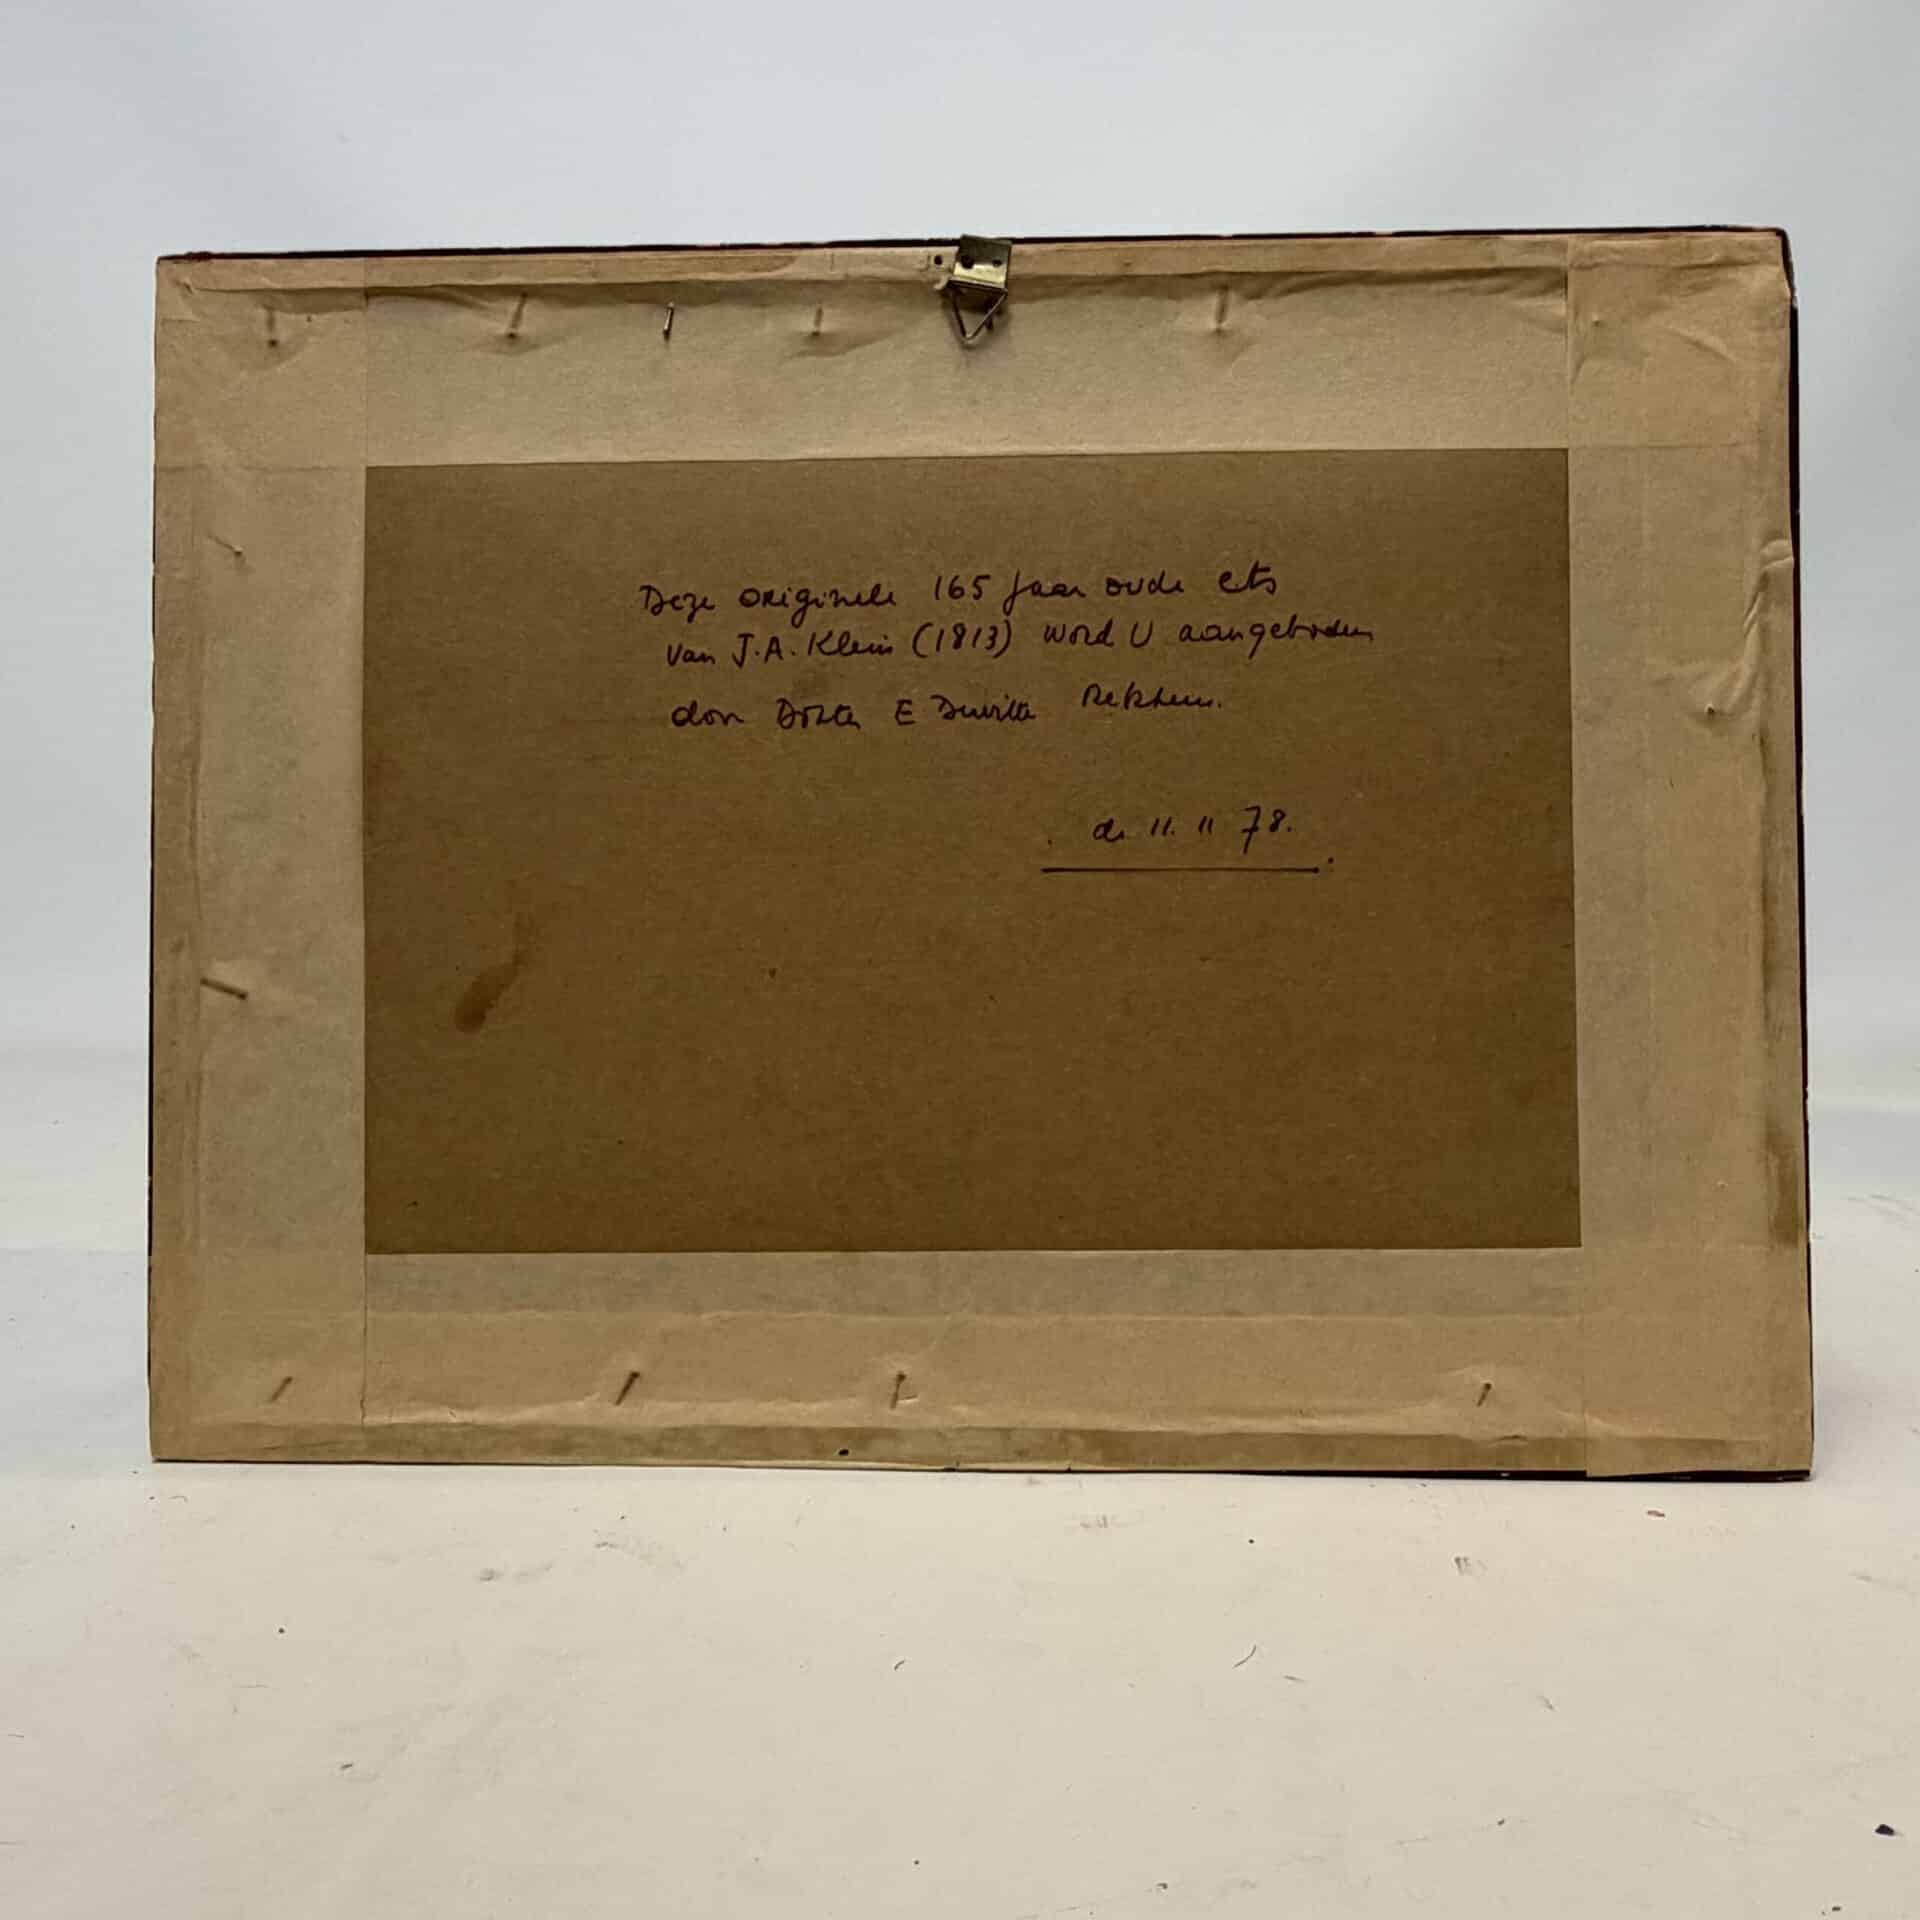 Deze originele 165 Jaar oude ets
van J.A. Klein (1813) word U aangeboden
door E Rekhem.
de 11. 11 78.